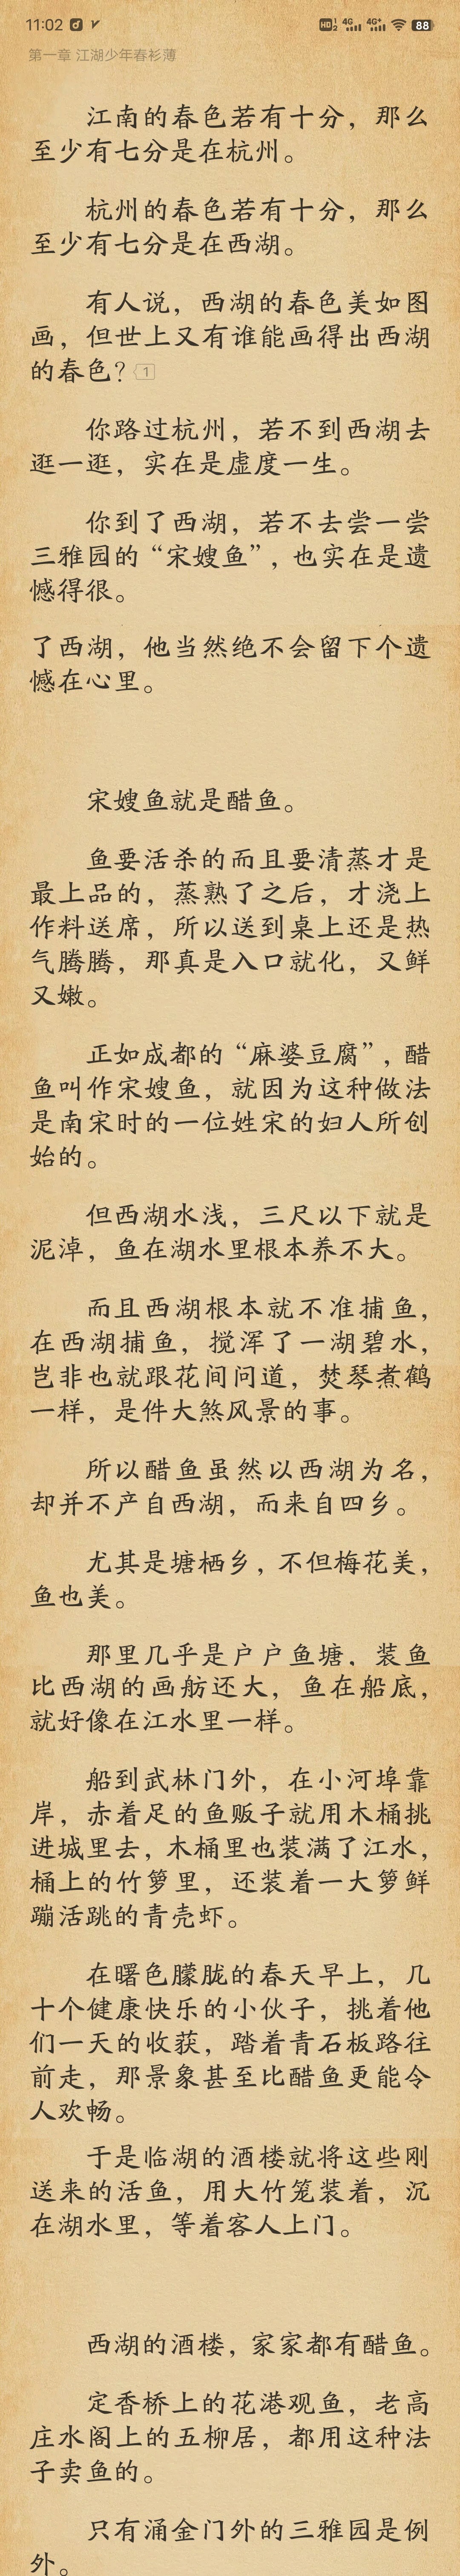 11:02
HD 1 2 4G 4G+ 88
第一章 江湖少年春衫薄
江南的春色若有十分，那么
至少有七分是在杭州。
杭州的春色若有十分，那么
至少有七分是在西湖。
有人说，西湖的春色美如图
画，但世上又有谁能画得出西湖
的春色？ 1
你路过杭州，若不到西湖去
逛一逛，实在是虚度一生。
你到了西湖，若不去尝一尝
三雅园的“宋嫂鱼”，也实在是遗
憾得很。
了西湖，他当然绝不会留下个遗
憾在心里。
宋嫂鱼就是醋鱼。
鱼要活杀的而且要清蒸才是
最上品的，蒸熟了之后，才浇上
作料送席，所以送到桌上还是热
气腾腾，那真是入口就化，又鲜
又嫩。
正如成都的“麻婆豆腐”，醋
鱼叫作宋嫂鱼，就因为这种做法
是南宋时的一位姓宋的妇人所创
始的。
但西湖水浅，三尺以下就是
泥淖，鱼在湖水里根本养不大。
而且西湖根本就不准捕鱼，
在西湖捕鱼，搅浑了一湖碧水，
岂非也就跟花间问道，焚琴煮鹤
一样，是件大煞风景的事。
所以醋鱼虽然以西湖为名，
却并不产自西湖，而来自四乡。
尤其是塘栖乡，不但梅花美，
鱼也美。
那里几乎是户户鱼塘，装鱼
比西湖的画舫还大，鱼在船底，
就好像在江水里一样。
船到武林门外，在小河埠靠
岸，赤着足的鱼贩子就用木桶挑
进城里去，木桶里也装满了江水，
桶上的竹箩里，还装着一大箩鲜
蹦活跳的青壳虾。
在曙色朦胧的春天早上，几
十个健康快乐的小伙子，挑着他
们一天的收获，踏着青石板路往
前走，那景象甚至比醋鱼更能令
人欢畅。
于是临湖的酒楼就将这些刚
送来的活鱼，用大竹笼装着，沉
在湖水里，等着客人上门。
西湖的酒楼，家家都有醋鱼。
定香桥上的花港观鱼，老高
庄水阁上的五柳居，都用这种法
子卖鱼的。
只有涌金门外的三雅园是例
外。